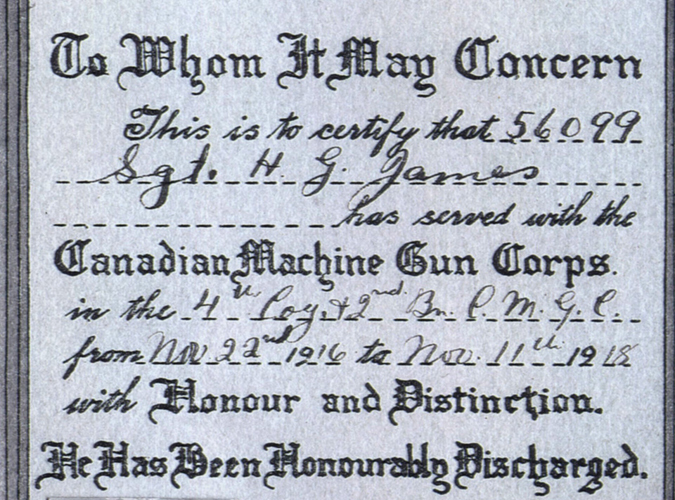 To Whom It May Concern
This is to certify that 56099
Sgt. H. G. James
has served with the
Canadian Machine Gun Corps.
in the 4th Coy. & 2nd Bn. C. M. G. C.
from Nov 22nd 1916 to Nov. 11th 1918
with Honour and Distinction.
He Has Been Honourably Discharged.